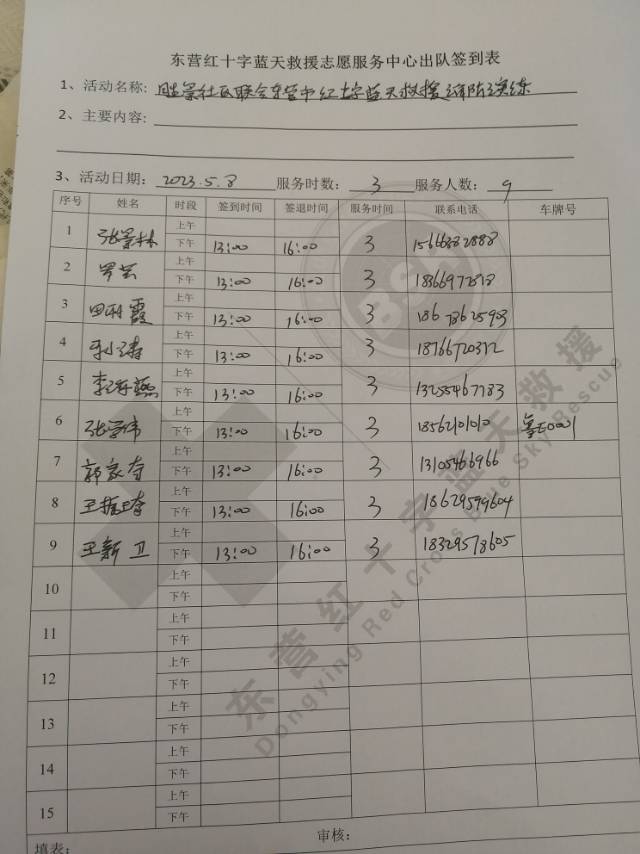 东营红十字蓝天救援志愿服务中心出队签到表
1、活动名称: 胜景社区联合东营市红十字蓝天救援消防演练
2、主要内容:
3、活动日期: 2023.5.8 服务时数: 3 服务人数: 9
序号 姓名 时段 签到时间 签退时间 服务时间 联系电话 车牌号
上午
1 张景林 下午 13:00 16:00 3 15666382888
上午
2 罗芸 下午 13:00 16:00 3
上午
3 霞 下午 13:00 16:00 3 18678625903
上午
4 下午 13:00 16:00 3 18766720372
上午
5 李 下午 13:00 16:00 3 13255467783
上午
6 张学伟 下午 13:00 16:00 3 18562101010
上午
7 郭家奇 下午 13:00 16:00 3 13105466966
上午
8 王振 下午 13:00 16:00 3 18629599604
上午
9 王新卫 下午 13:00 16:00 3 18329578605
上午
10 下午
上午
11 下午
上午
12 下午
上午
13 下午
上午
14 下午
上午
15 下午
填表: 审核:
东营红十字蓝天救援
Dongying Red Cross Blue Sky Rescue